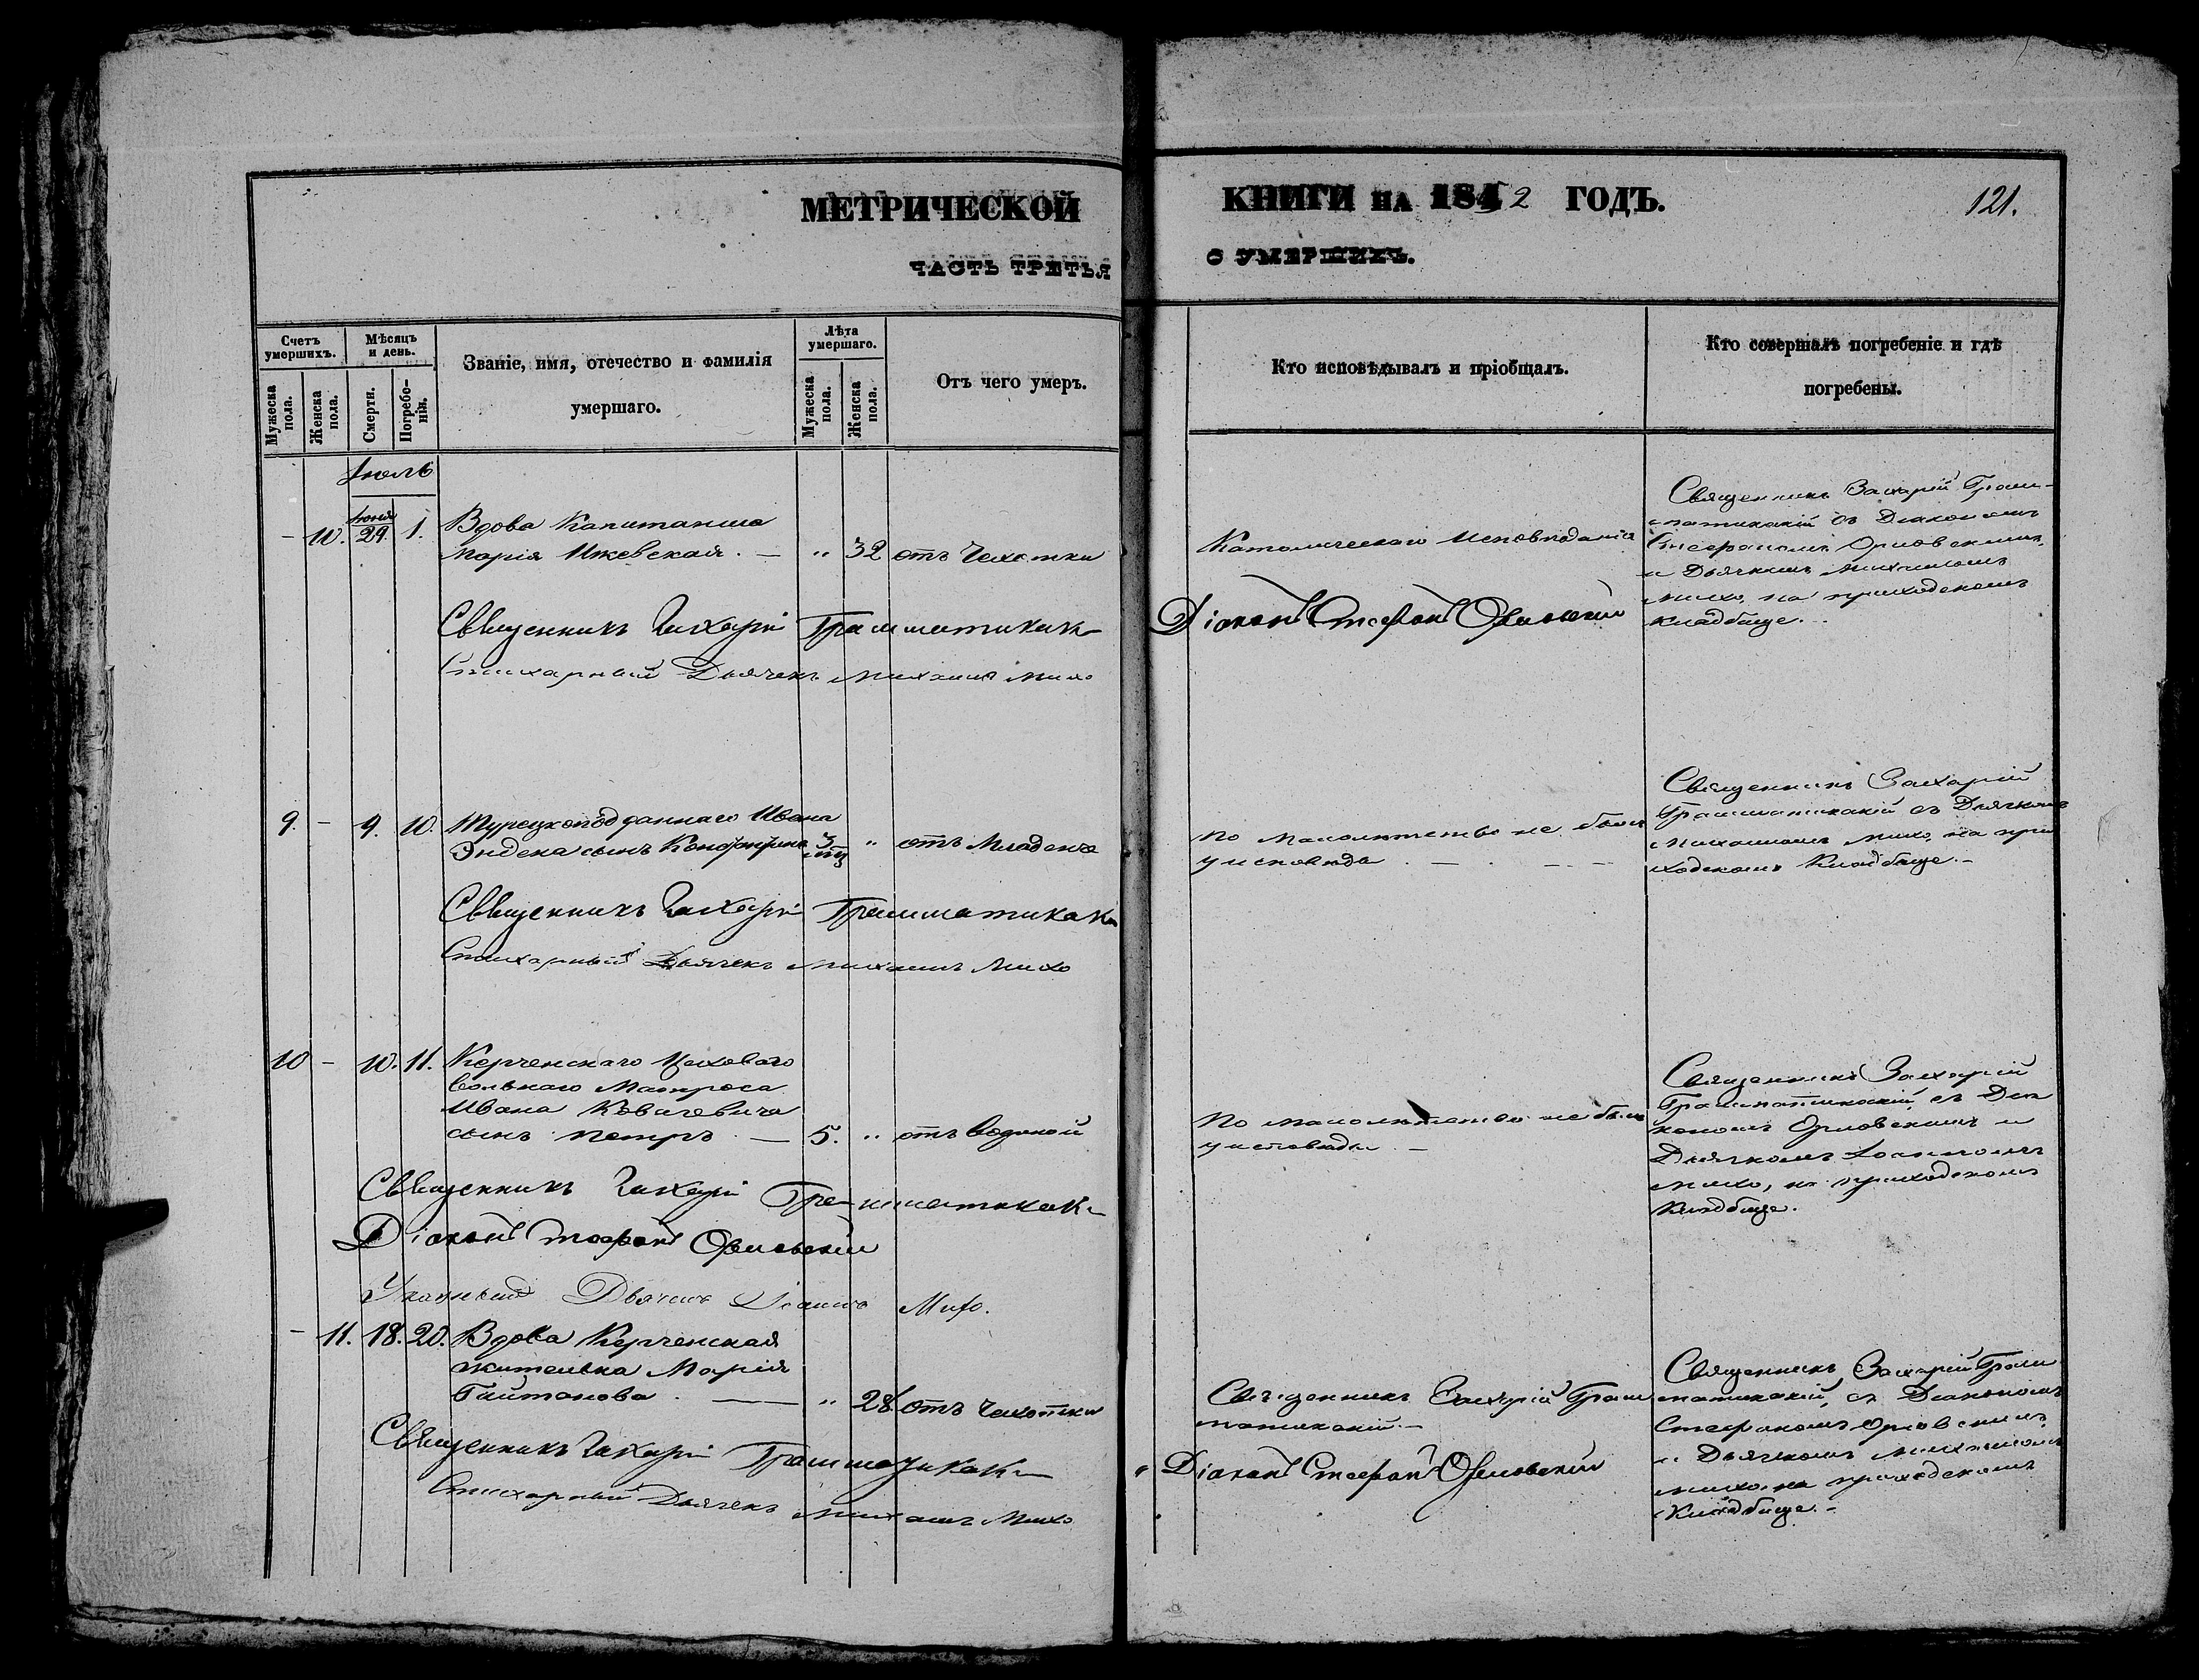 МЕТРИЧЕСКОЙ
ЧАСТЬ ТРЕТЬЯ
Счетъ умершихъ.
Мужеска пола.
Женска пола.
Мѣсяцъ и день.
Смерти.
Погребенія.
Званіе, имя, отечество и фамилія
умершаго.
Лѣта умершаго.
Мужеска пола.
Женска пола.
Отъ чего умеръ.
Іюль
– 10. Іюня 29. 1. Вдова Капитанша
Марія Ижевская. — " 32 отъ Чахотки
Священникъ Захарій Грамматикаки
Стихарный Дьячекъ Михаилъ Михо
9. – 9. 10. Турецкоподданнаго Ивана
сынъ 3 " отъ Младенч
Священникъ Захарій Грамматикаки
Стихарный Дьячекъ Михаилъ Михо
10 – 10. 11. Керченскаго Цеховаго
вольнаго Матроса
Ивана Ковачевича
сынъ Петръ. — 5. " отъ водяной
Священникъ Захарій Грамматикаки
Діаконъ Стефанъ Орловскій
Указный Дьячекъ Іоаннъ Михо.
– 11. 18. 20. Вдова Керченская
жителька Марія
Гайтанова. — " 28 отъ Чахотки
Священникъ Захарій Грамматикаки
Стихарный Дьячекъ Михаилъ Михо
КНИГИ НА 1842 ГОДЪ.
121.
О УМЕРШИХЪ.
Кто исповѣдывалъ и пріобщалъ.
Кто совершалъ погребеніе и гдѣ
погребены.
Католическаго Исповѣданія
Діаконъ Стефанъ Орловскій
Священникъ Захарій Грам-
матикакій съ Діакономъ
Стефаномъ Орловскимъ
и Дьячкомъ Михаиломъ
Михо, на приходскомъ
кладбище.
По малолѣтству не былъ
у исповѣди. —
Священникъ Захарій
Грамматикакій съ Дьячкомъ
Михаиломъ Михо, на при
ходскомъ Кладбище. –
По малолѣтству не былъ
у исповѣди. –
Священникъ Захарій
Грамматикакій, съ Діа
кономъ Орловскимъ и
Дьячкомъ Іоанномъ
Михо, на приходскомъ
Кладбище.
Священникъ Захарій Грам
матикакій. –
Діаконъ Стефанъ Орловскій
Священникъ Захарій Грам
матикакій, съ Діакономъ
Стефаномъ Орловскимъ
и Дьячкомъ Михаиломъ
Михо, на приходскомъ
Кладбище. –